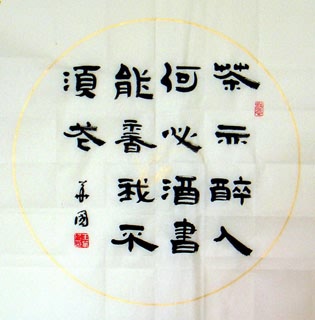 茶亦醉人
何必酒書
能香我不
湏花